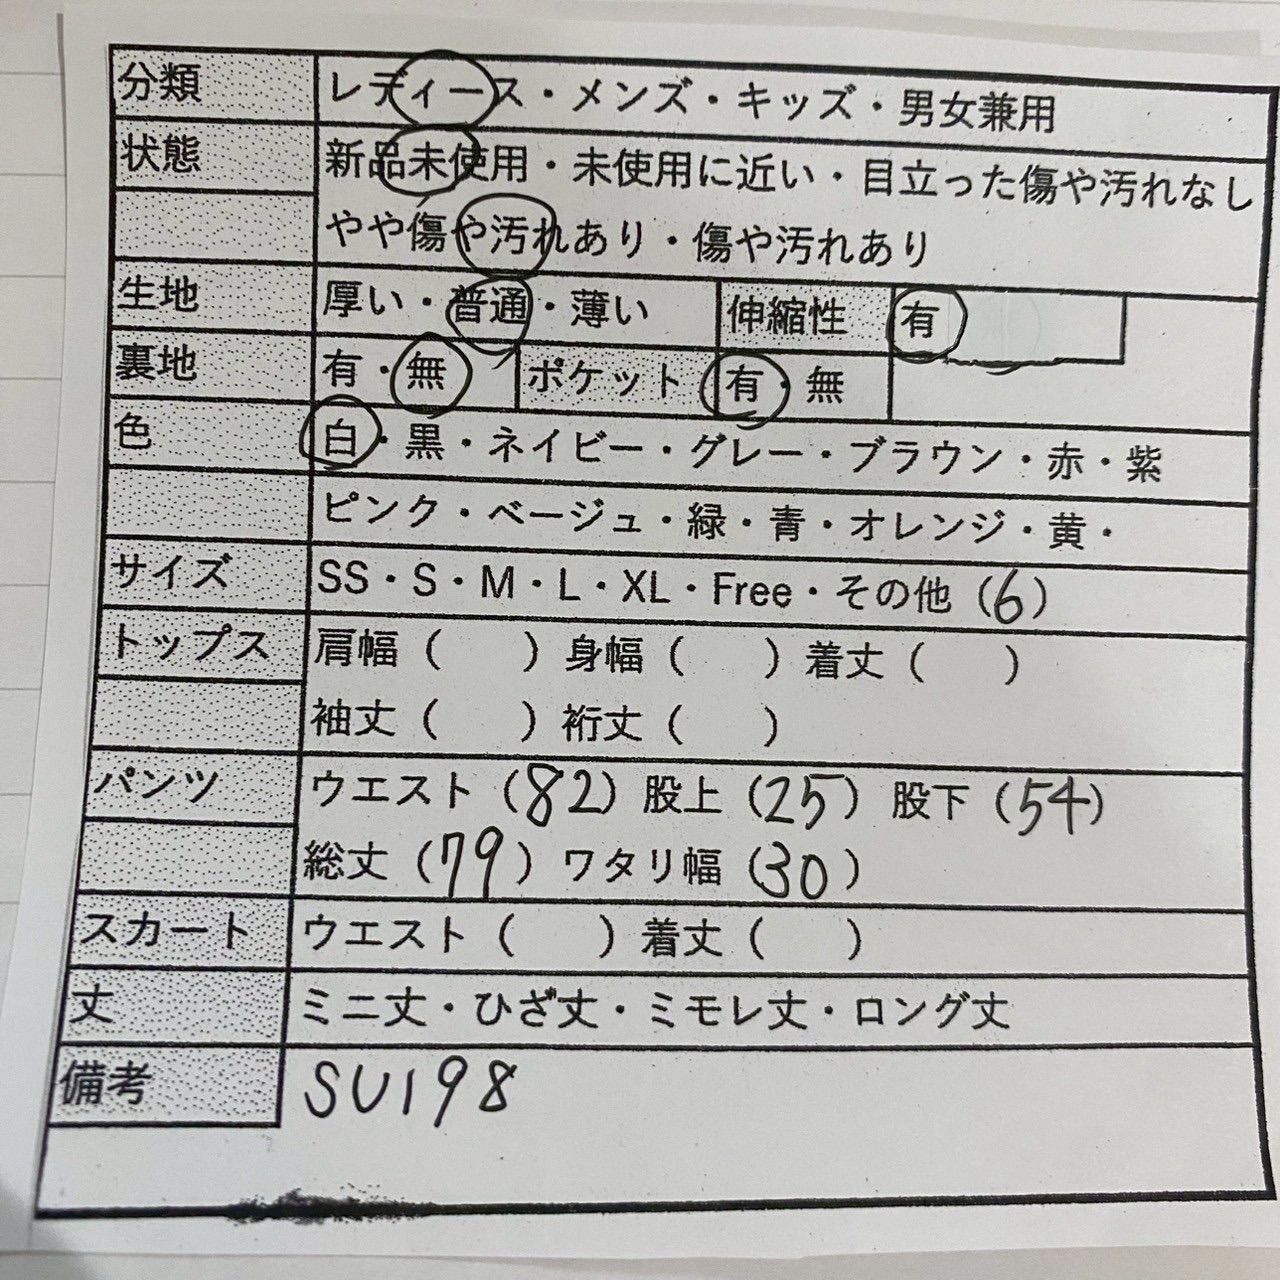 分類 レディース・メンズ・キッズ・男女兼用
状態 新品未使用・未使用に近い・目立った傷や汚れなし
やや傷や汚れあり・傷や汚れあり
生地 厚い・普通・薄い 伸縮性 有
裏地 有・無 ポケット 有・無
色 白・黒・ネイビー・グレー・ブラウン・赤・紫
ピンク・ベージュ・緑・青・オレンジ・黄・
サイズ SS・S・M・L・XL・Free・その他（6）
トップス 肩幅（　　）身幅（　　）着丈（　　）
袖丈（　　）裄丈（　　）
パンツ ウエスト（82）股上（25）股下（54）
総丈（79）ワタリ幅（30）
スカート ウエスト（　　）着丈（　　）
丈 ミニ丈・ひざ丈・ミモレ丈・ロング丈
備考 SU198